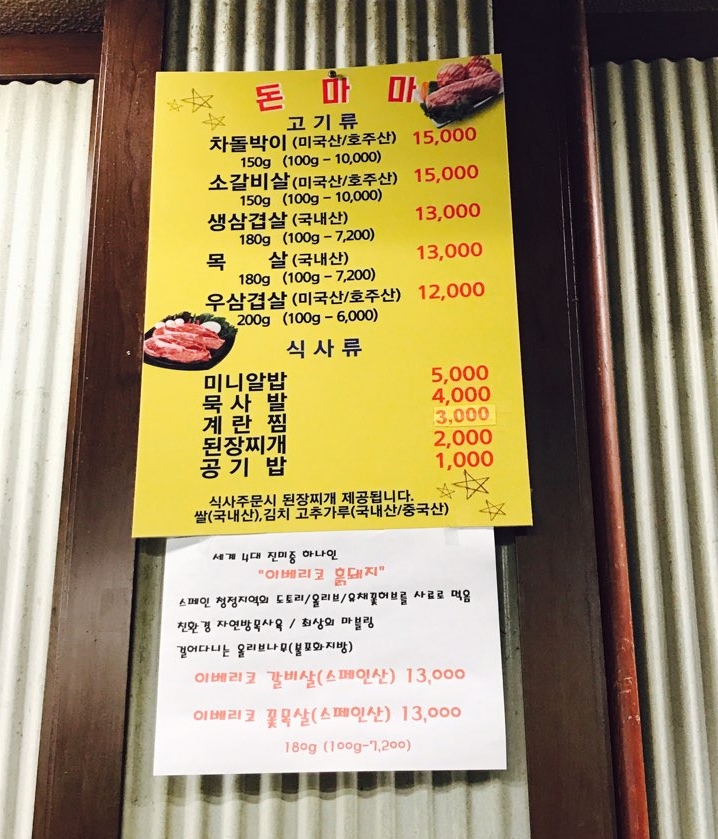 돈 마 마
고 기 류
차돌박이 (미국산/호주산) 15,000
150g (100g – 10,000)
소갈비살 (미국산/호주산) 15,000
150g (100g – 10,000)
생삼겹살 (국내산) 13,000
180g (100g – 7,200)
목 살 (국내산) 13,000
180g (100g – 7,200)
우삼겹살 (미국산/호주산) 12,000
200g (100g – 6,000)
식 사 류
미니알밥 5,000
묵 사 발 4,000
계 란 찜 3,000
된장찌개 2,000
공 기 밥 1,000
식사주문시 된장찌개 제공됩니다.
쌀(국내산),김치 고추가루(국내산/중국산)
세계 4대 진미중 하나인
"이베리코 흙돼지"
스페인 청정지역의 도토리/올리브/유채꽃허브를 사료로 먹음
친환경 자연방목사육 / 최상의 마블링
걸어다니는 올리브나무(불포화지방)
이베리코 갈비살(스페인산) 13,000
이베리코 꽃목살(스페인산) 13,000
180g (100g-7,200)